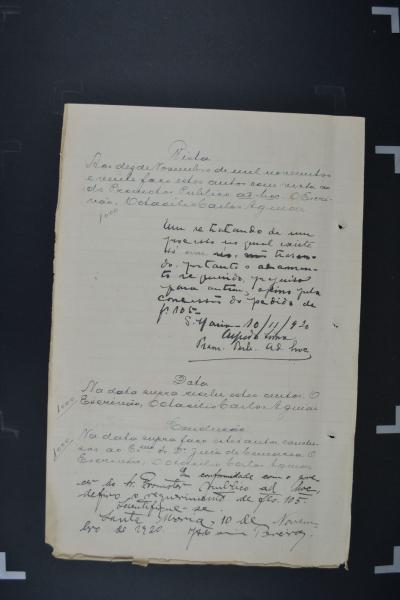 Vista
Aos dez de Novembro de mil novecentos
e vinte faço estes autos com vista ao
do Promotor Publico ad-hoc. O Escri-
vão, Octacilio Carlos Aguiar
1000
Em se tratando de um
processo no qual existe
só um réo,
do, portanto o
to requerido,
para outrem, opino pela
concessão do pedido de
fs 105-
S. Maria 10/11/920
Prom. Publ. ad hoc
Data
Na data supra recebi estes autos. O
Escrivão, Octacilio Carlos Aguiar
1000
Conclusão
Na data supra faço estes autos conclu-
sos ao Exmo. Dr. Juiz de Comarca. O
Escrivão, Octacilio Carlos Aguiar
1000
Em conformidade com o pare-
cer do Dr. Promotor Publico ad hoc,
defiro o requerimento de fls. 105.
Scientifique-se.
Santa Maria, 10 de Novem-
bro de 1920.